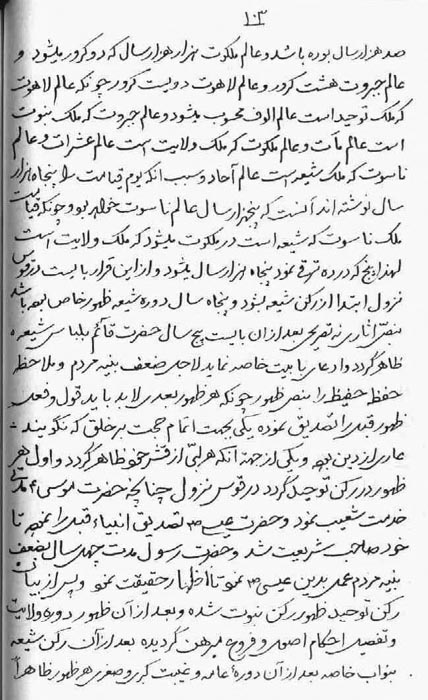 ١٠٣
صد هزار سال بوده باشد و عالم ملکوت هزار هزار سال که دو کرور میشود و
عالم جبروت هشت کرور و عالم لاهوت دویست کرور چونکه عالم لاهوت
که ملک توحید است عالم الوف محسوب میشود و عالم جبروت که ملک نبوت
است عالم مآت و عالم ملکوت که ملک ولایت است عالم عشرات و عالم
ناسوت که ملک شیعه است عالم آحاد و سبب آنکه یوم قیامت را پنجاه هزار
سال نوشته اند آنست که پنجهزار سال عالم ناسوت خواهد بود و چونکه قیامت
ملک ناسوت که شیعه است در ملکوت میشود که ملک ولایت است
لهذا پنج که در ده ترقی نمود پنجاه هزار سال میشود و از این قرار بایست در قوس
نزول ابتدا از رکن شیعه بشود و پنجاه سال دوره شیعه ظهور خاص بوده باشد
بنص اشاری نه تصریحی بعد از آن بایست پنج سال حضرت قائم بلباس شیعه
ظاهر گردد و ادعای بابیت خاصه نماید لاجل ضعف بنیه مردم و ملاحظه
حفظ حفیظ را بنص ظهور چونکه هر ظهور بعدی لابد باید قول و فعل
ظهور قبلی را تصدیق نموده یکی بجهت اتمام حجت بر خلق که نگویند
عاری از دین بود و یکی از جهة آنکه هر لبّی از قشر خود ظاهر گردد و اول هر
ظهور در رکن توحید گردد در قوس نزول چنانچه حضرت موسی ع مدتی
خدمت شعیب نمود و حضرت عیسی تصدیق انبیاء قبل را نمود تا
خود صاحب شریعت شد و حضرت رسول مدت چهل سال بضعف
بنیه مردم عمل بدین عیسی نمود تا اظهار حقیقت نمود و پس از بیان
رکن توحید ظهور رکن نبوت شده و بعد از آن ظهور دوره ولایت
و تفصیل احکام اصول و فروع مبرهن گردیده بعد از آن رکن شیعه
بنواب خاصه بعد از آن دورهٔ عامه و غیبت کبری و صغری هر ظهور ظاهراً